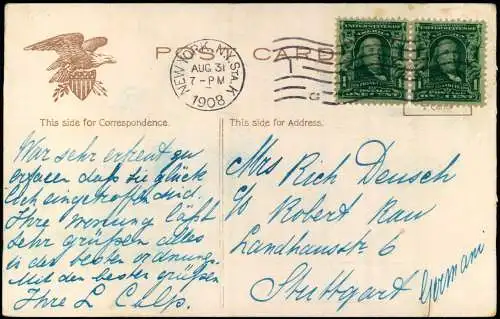 POST CARD
NEW YORK, N.Y. STA. K
AUG 31
7-PM
1908
This side for Correspondence.
This side for Address.
War sehr erfreut zu
erfaren daß sie glück
lich eingetroffen sind.
Ihre wonung läßt
sehr grüßen alles
in der besten ordnung.
Mit den besten grüßen
Ihre L Calp.
Mrs Rich Deusch
c/o Robert Rau
Landhausstr 6
Stuttgart
Germani